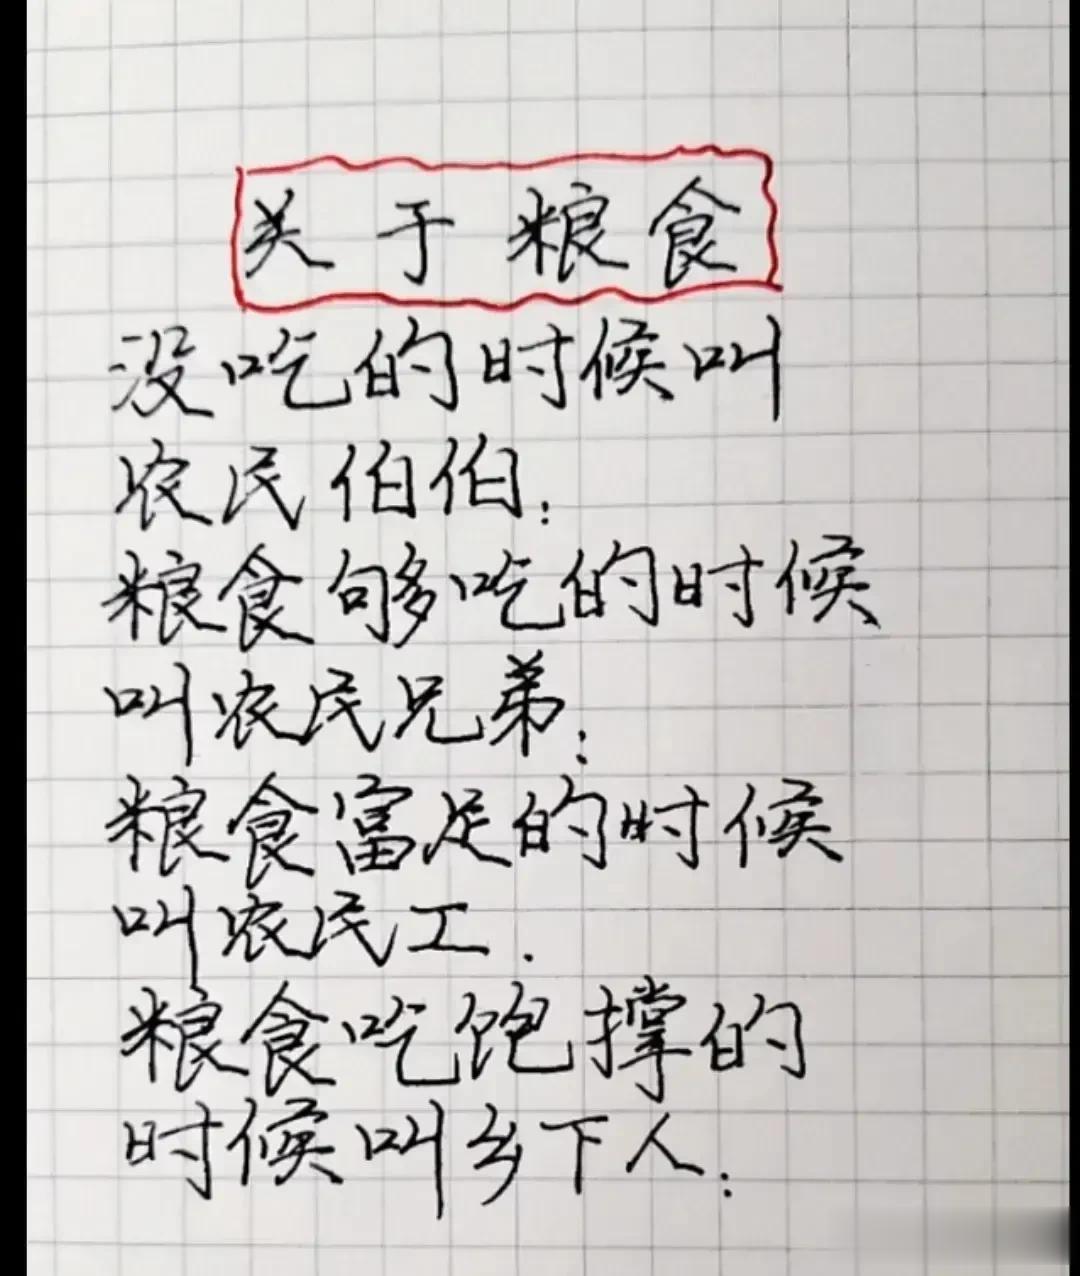 关于粮食
没吃的时候叫
农民伯伯:
粮食够吃的时候
叫农民兄弟:
粮食富足的时候
叫农民工.
粮食吃饱撑的
时候叫乡下人: